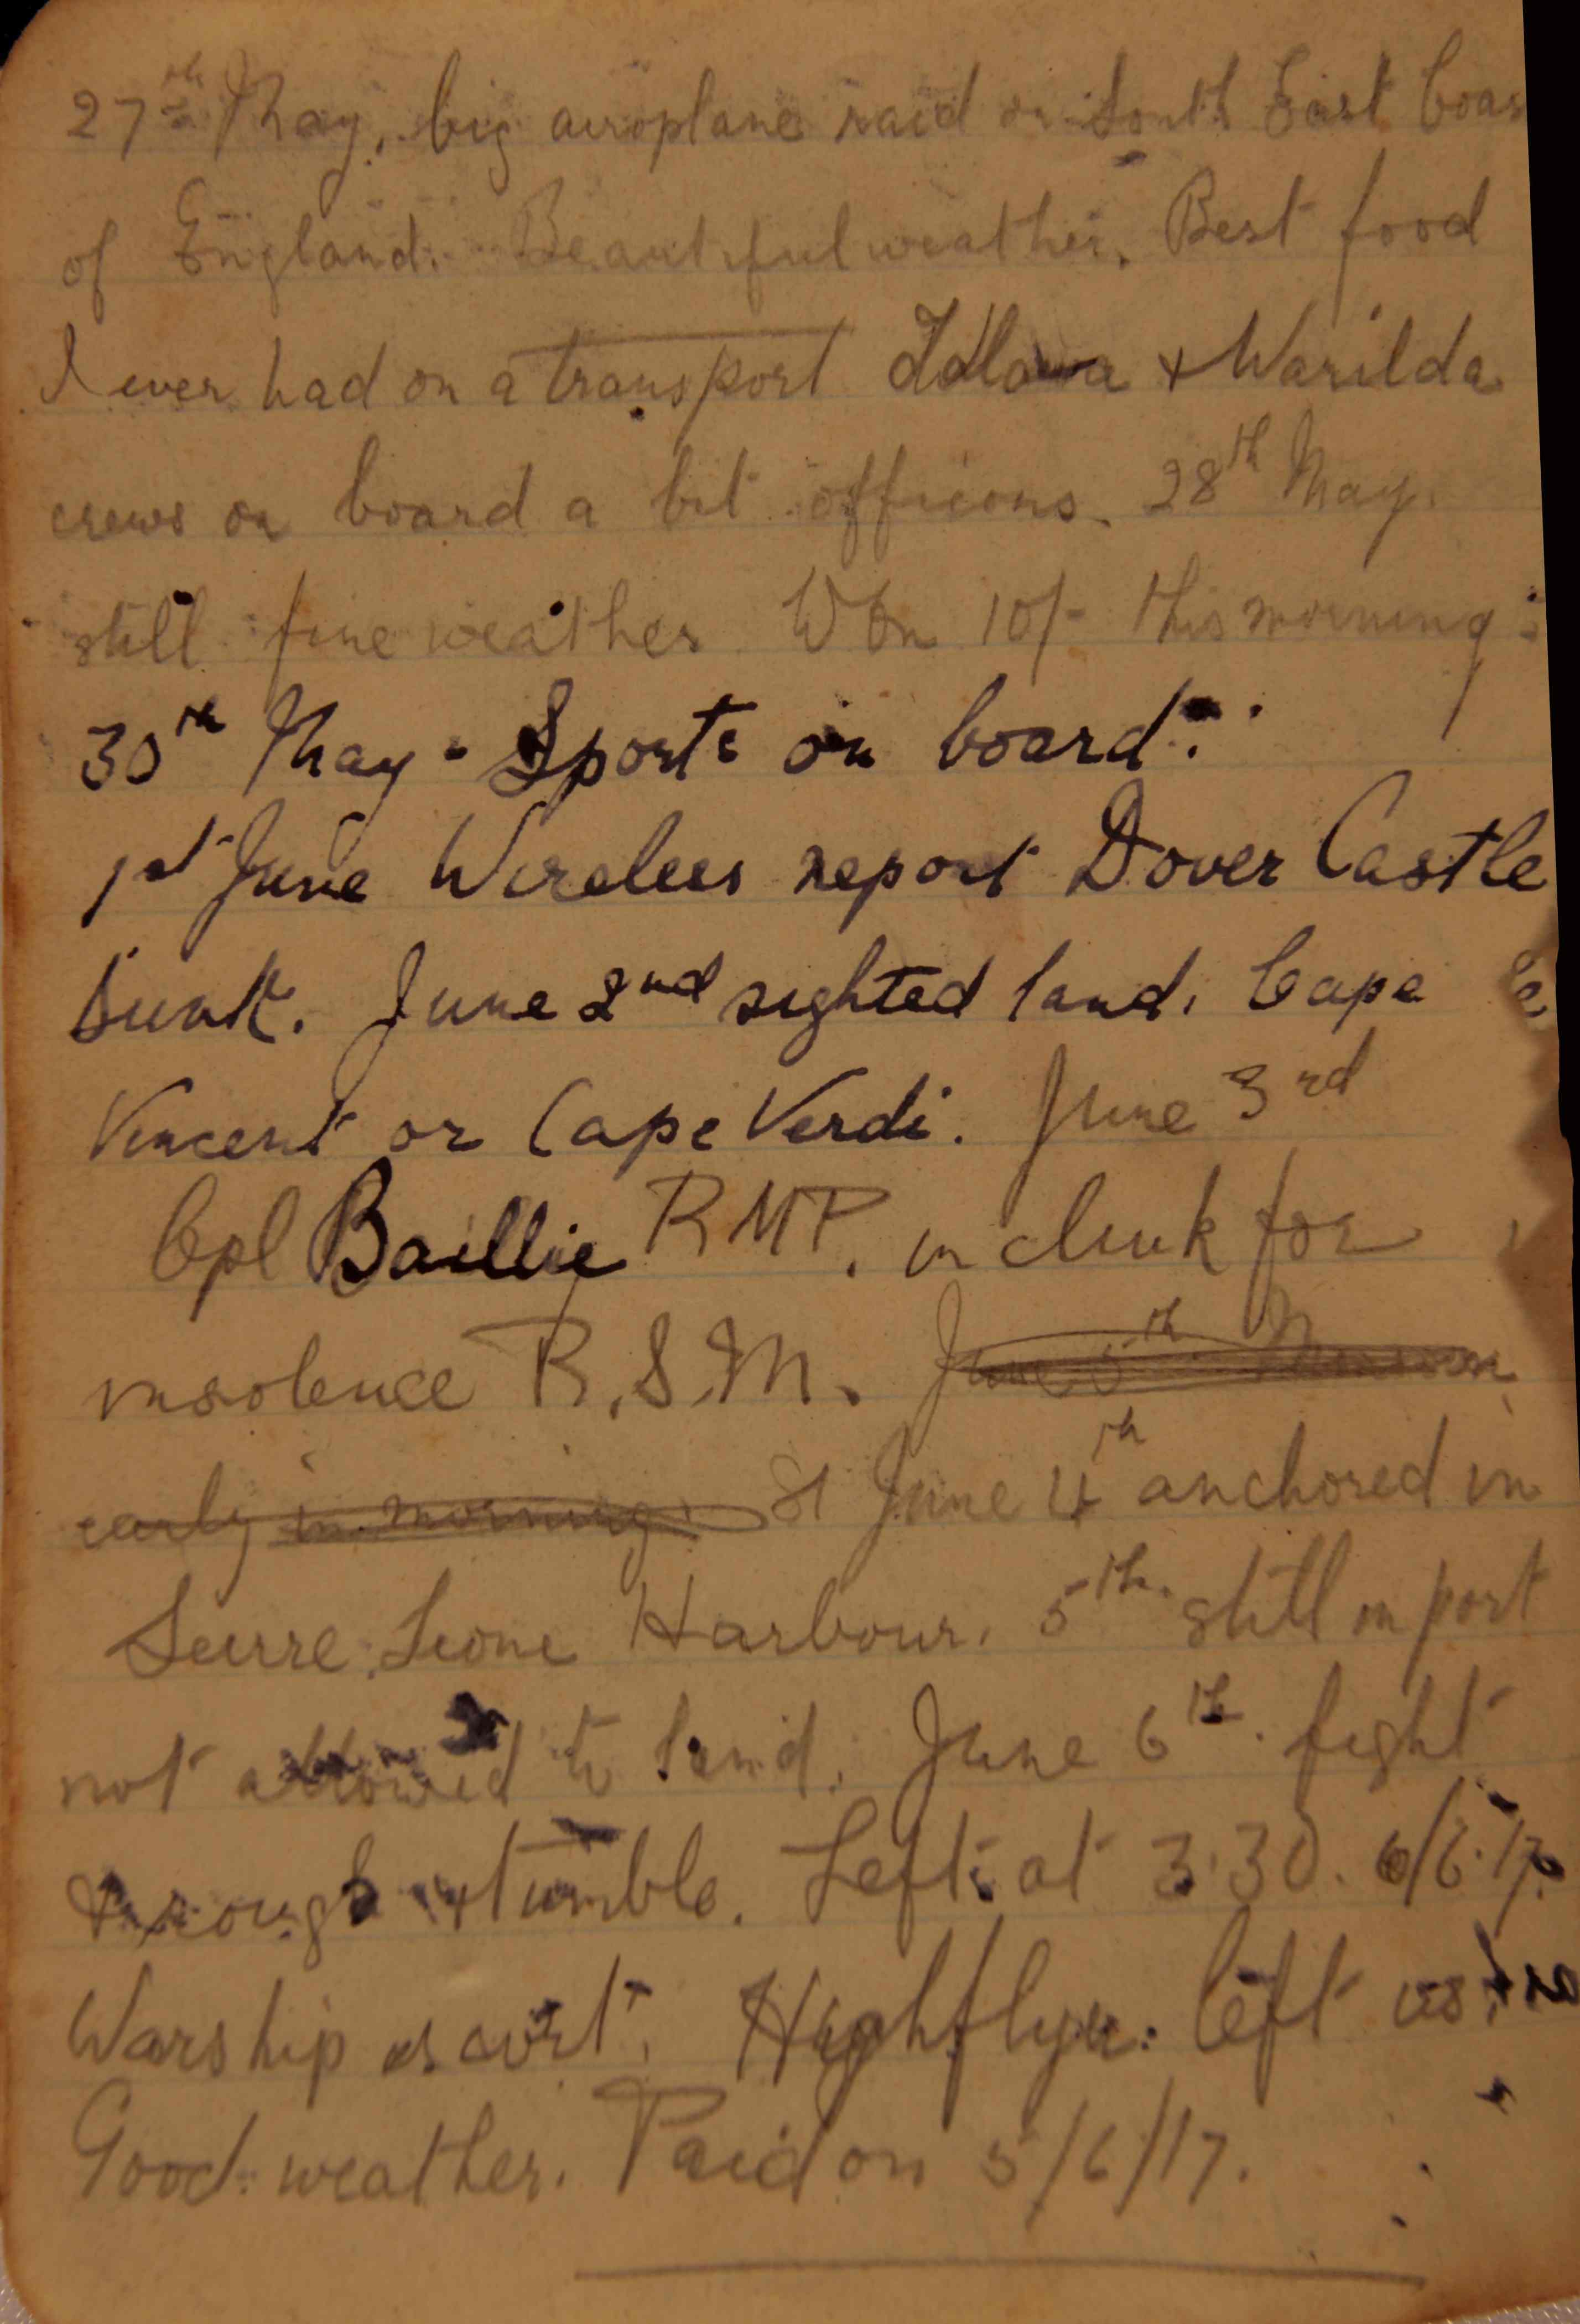 27th May, big airoplane raid on South East Coas
of England. Beautiful weather. Best food
I ever had on a transport & Warilda
crews on board a bit officous. 28th May.
still fine weather Won 10/- this morning
30th May - Sports on board.
1st June Wireless report Dover Castle
sunk. June 2nd sighted land. Cape
Vincent or Cape Verdi. June 3rd
Cpl Baillie RMP. in clink for
insolence R.S.M. June 5th
early in morning. St June 4th anchored in
Seirre Leone Harbour. 5th still in port
not allowed to land. June 6th. fight
rough & tumble. Left at 3.30. 6/6.17.
Warship escort. Highflyer left us.
Good weather. Paid on 5/6/17.